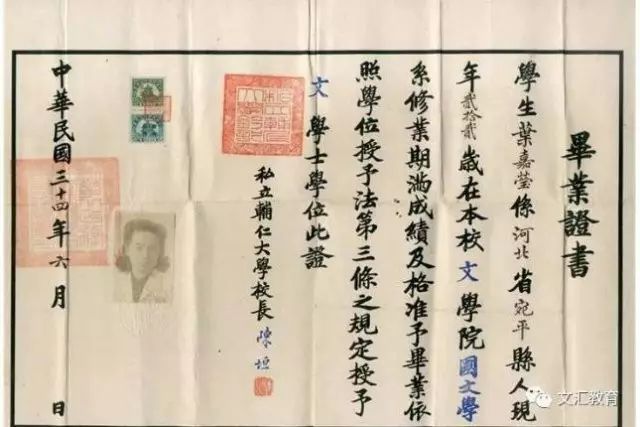 畢業證書
學生葉嘉瑩係河北省宛平縣人現
年貳拾貳歲在本校文學院國文學
系修業期滿成績及格准予畢業依
照學位授予法第三條之規定授予
文學士學位此證
私立輔仁大學校長陳垣
中華民國三十四年六月 日
文汇教育